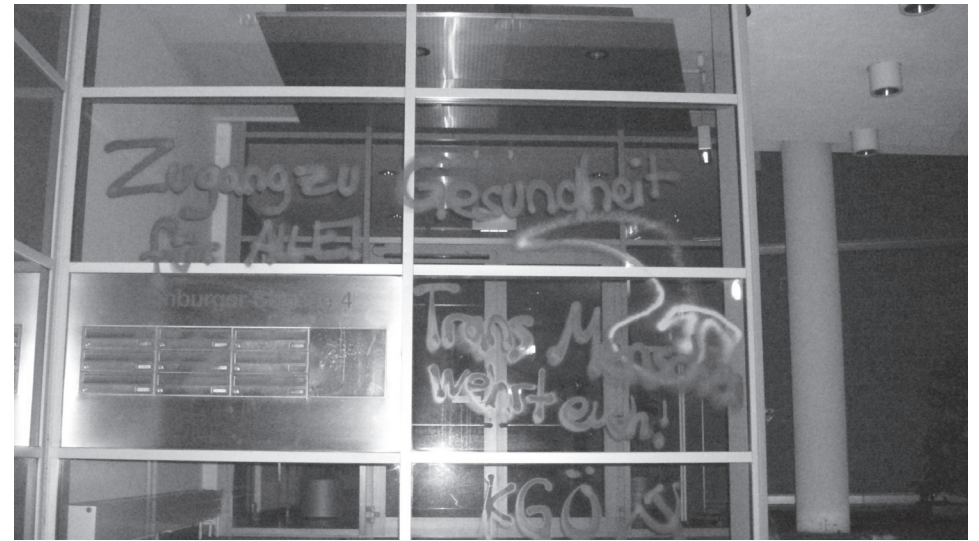 Zugang zu Gesundheit
für ALLE!
nburger Straße 4
Trans Menschen
wehrt euch!
KGÖ